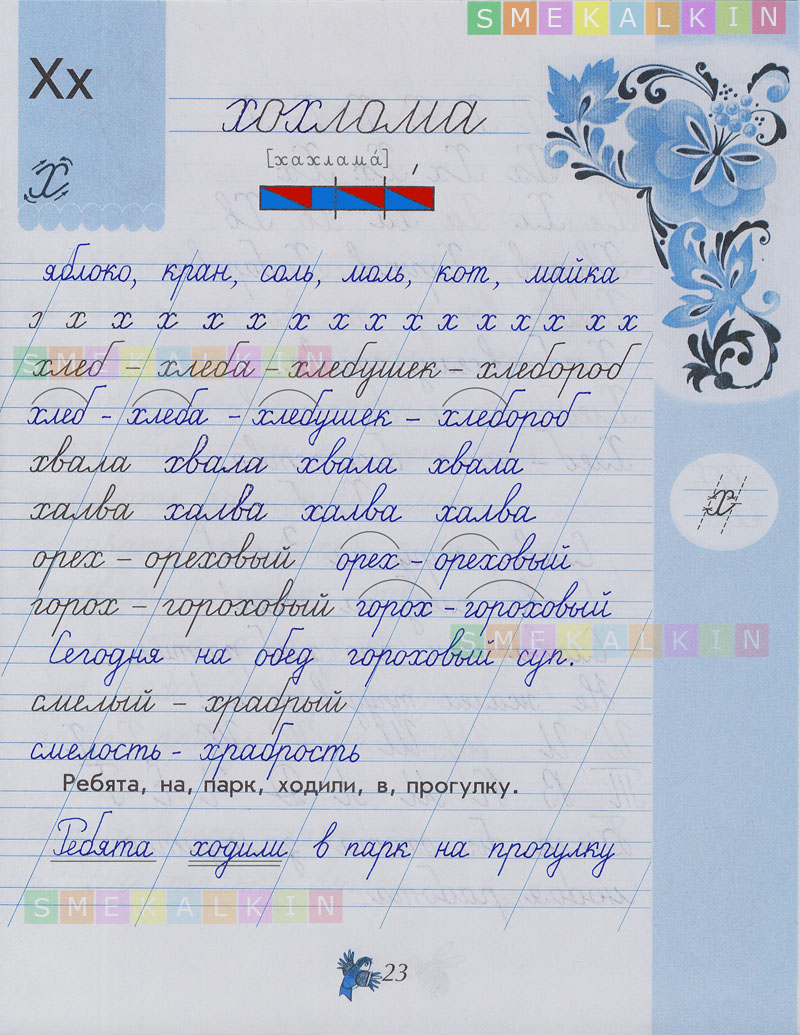 SMEKALKIN
Хх
хохлома
[хахлама́]
х
яблоко, кран, соль, моль, кот, майка
х х х х х х х х х х х х х х х
SMEKALKIN
хлеб – хлеба – хлебушек – хлебороб
хлеб – хлеба – хлебушек – хлебороб
хвала хвала хвала хвала
х
халва халва халва халва
орех – ореховый орех – ореховый
горох – гороховый горох – гороховый
SMEKALKIN
Сегодня на обед гороховый суп.
смелый – храбрый
смелость – храбрость
Ребята, на, парк, ходили, в, прогулку.
Ребята ходили в парк на прогулку
SMEKALKIN
23